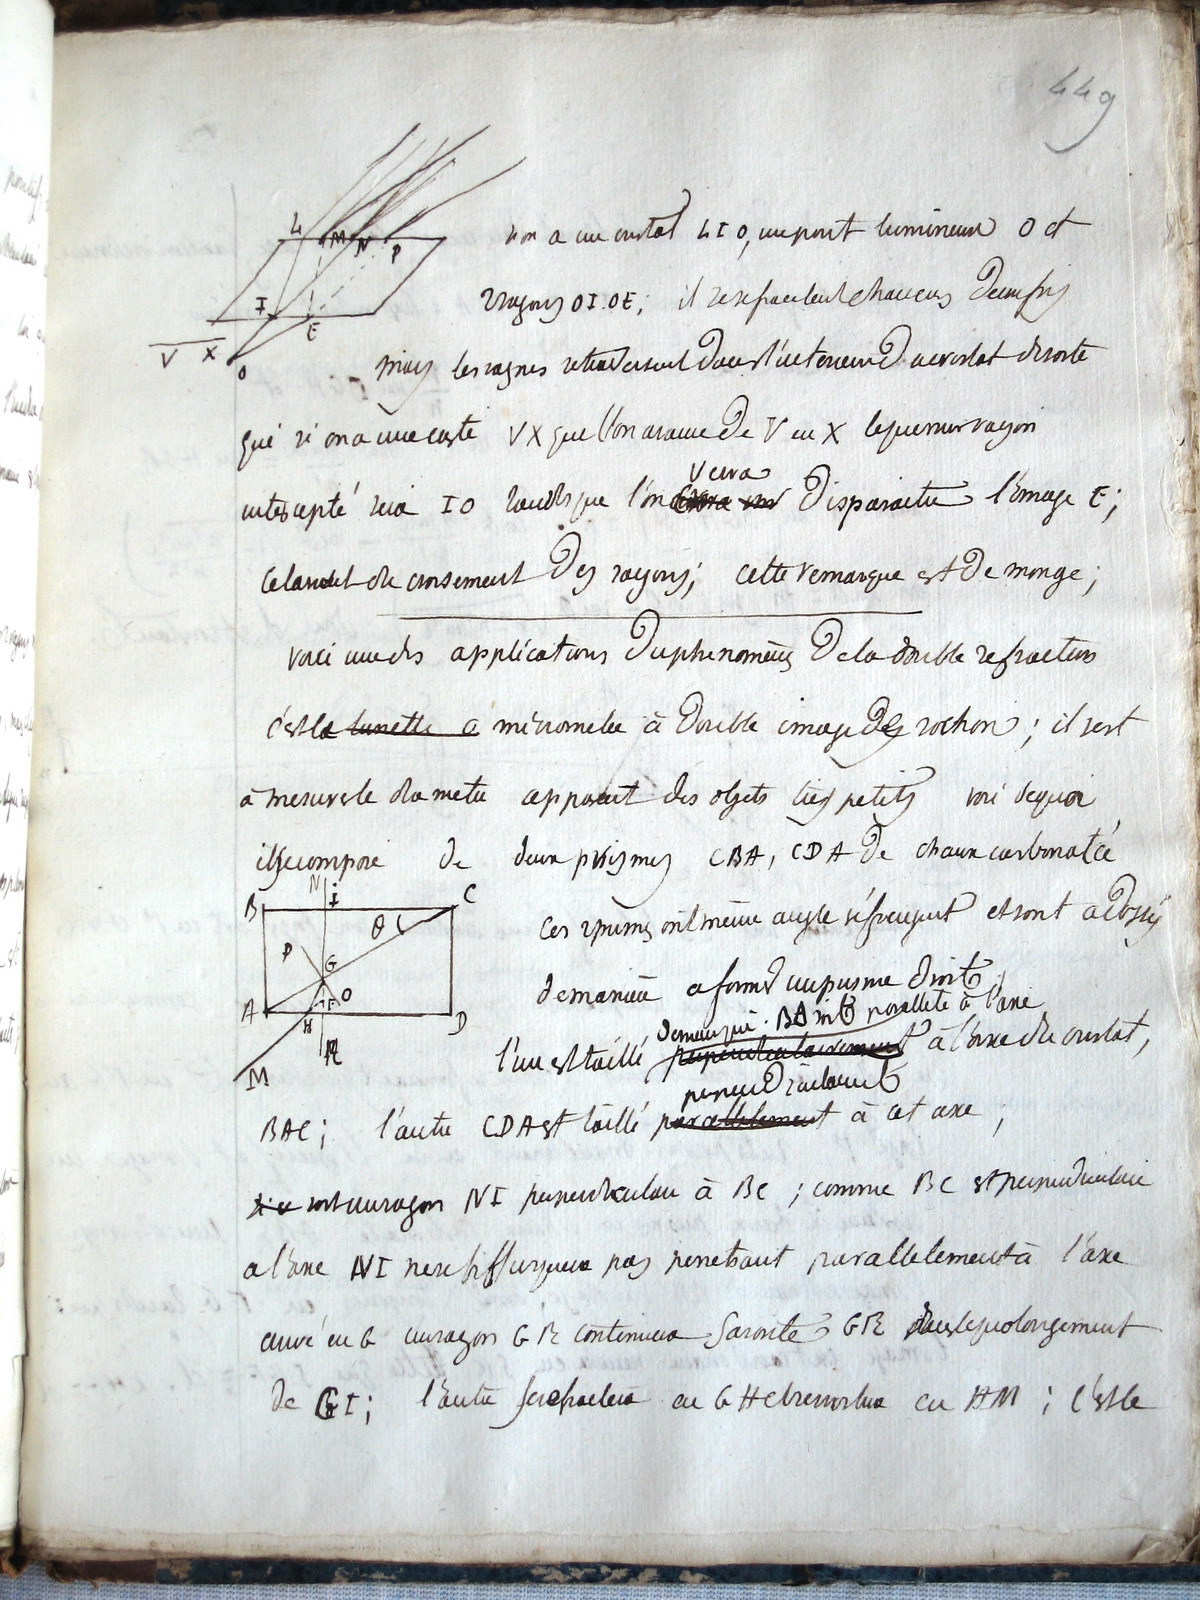 449
L M N P
I E
V X O
si on a un cristal LIO, un point lumineux O et
2 rayons OI. OE; il se refractent chacuns deux fois
mais les rayons se traversent dans l'interieur d ce cristal de sorte
que si on a une carte VX que l'on avance de V en X le premier rayon
verra
intercepté sera IO tandis que l'on disparaitre l'image E;
cela vient du croisement des rayons; cette remarque est de monge;
voici une des applications du phenomène de la double refraction
c'est le lunette a micrometre à double image de rochon; il sert
à mesurer le diametre apparent des objets très petits voici de quoi
il se compose de deux prismes CBA, CDA de chaux carbonatée
N I
B C
θ
P G
A H F O D
R
M
ces 2 prismes ont même angle réfringent et sont adossés
de maniere a former un prisme droit
de maniere BA soit parallele à l'axe
l'un est taillé perpendiculairement à l'axe du cristal,
perpendiculairement
BAC; l'autre CDA est taillé parallelement à cet axe;
soit un rayon NI perpendiculaire à BC; comme BC est perpendiculaire
a l'axe NI ne se biffurquera pas penetrant parallelement à l'axe
arrivé en G un rayon GR continuera sa route GR dans le prolongement
de GI; l'autre se refractera en GH et ressortira en HM; c'est le